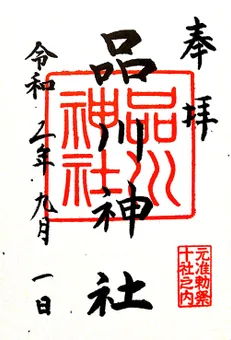 奉拝
品川神社
品川神社
元准勅祭
十社之内
令和五年九月一日